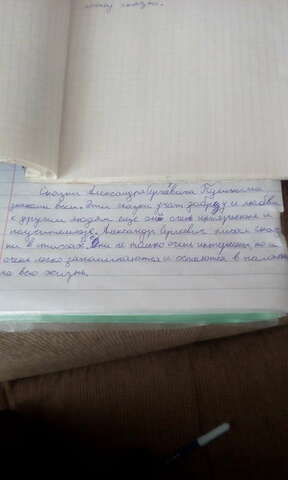 сказка.
Сказки Александра Сергеевича Пушкина
знакомы всем. Эти сказки учат добру и любви
к другим людям еще они очень интересные и
поучительные. Александр Сергеевич писал сказ
ки в стихах. Они не только очень интересны, но и
очень легко запоминаются и остаются в памяти
на всю жизнь.